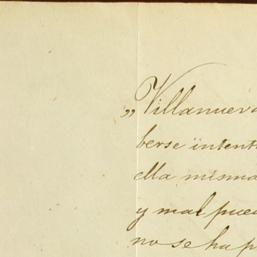 „Villanueva
berse intent
ella misma
y mal pued
no se ha p